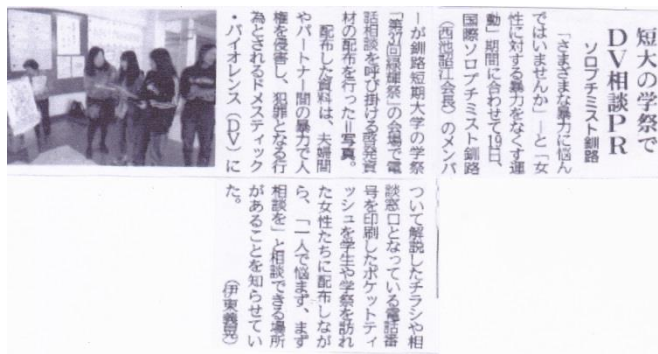 短大の学祭で
DV相談PR
ソロプチミスト釧路
「さまざまな暴力に悩ん
ではいませんか」―と「女
性に対する暴力をなくす運
動」期間に合わせて19日、
国際ソロプチミスト釧路
(西池詔江会長)のメンバ
ーが釧路短期大学の学祭
「第37回緑輝祭」の会場で電
話相談を呼び掛ける啓発資
材の配布を行った=写真。
配布した資料は、夫婦間
やパートナー間の暴力で人
権を侵害し、犯罪となる行
為とされるドメスティック
・バイオレンス(DV)に
ついて解説したチラシや相
談窓口となっている電話番
号を印刷したポケットティ
ッシュを学生や学祭を訪れ
た女性たちに配布しなが
ら、「一人で悩まず、まず
相談を」と相談できる場所
があることを知らせてい
た。
(伊東義晃)